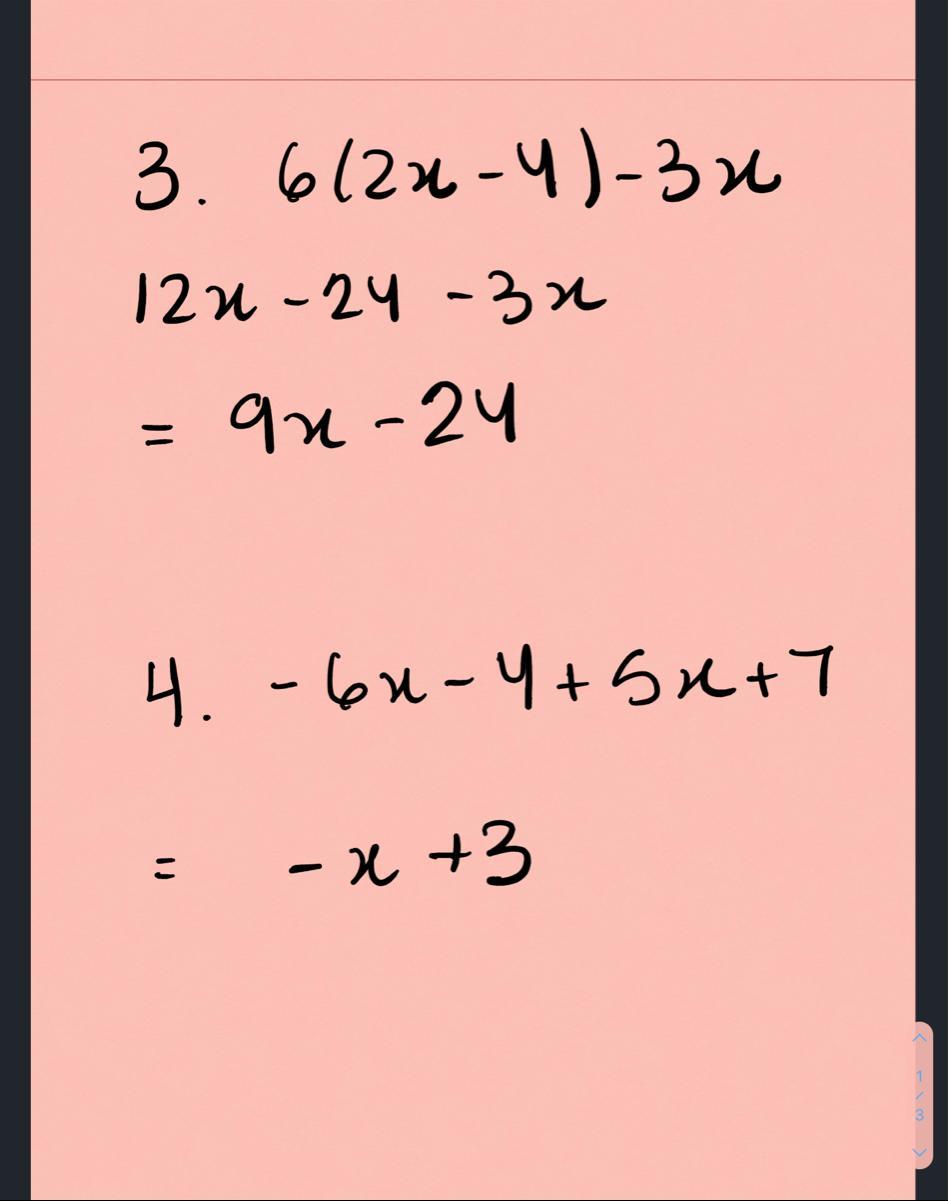 3. 6(2x-4)-3x
12x-24-3x
= 9x-24
4. -6x-4+5x+7
= -x+3
1
/
3